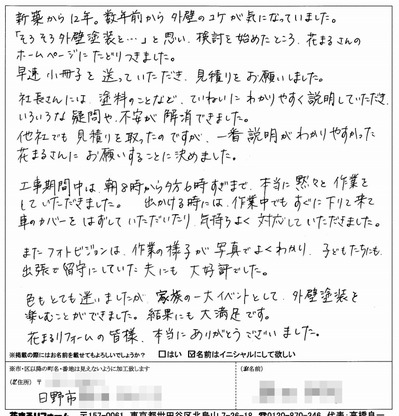 新築から12年。数年前から外壁のコケが気になっていました。
「そろそろ外壁塗装と…」と思い、検討を始めたところ、花まるさんの
ホームページにたどりつきました。
早速小冊子を送っていただき、見積りをお願いしました。
社長さんには、塗料のことなど、ていねいにわかりやすく説明していただき、
いろいろな疑問や、不安が解消できました。
他社でも見積りを取ったのですが、一番説明がわかりやすかった
花まるさんにお願いすることに決めました。
工事期間中は、朝8時から夕方6時すぎまで、本当に黙々と作業を
していただきました。出かける時には、作業中でもすぐに下りて来て
車のカバーをはずしていただいたり、気持ちよく対応していただきました。
またフォトビジョンは、作業の様子が写真でよくわかり、子どもたちにも、
出張で留守にしていた夫にも大好評でした。
色もとても迷いましたが、家族の一大イベントとして、外壁塗装を
楽しむことができました。結果にも大満足です。
花まるリフォームの皆様、本当にありがとうございました。
※掲載の際にはお名前を載せてもよろしいでしょうか？ □はい ☑名前はイニシャルにして欲しい
※市・区以降の町名・番地は見えないように加工致します
（ご住所）〒
（お名前）
日野市
花まるリフォーム 〒157-0061 東京都世田谷区北烏山7-26-18 ☎0120-870-246 代表：高橋良一